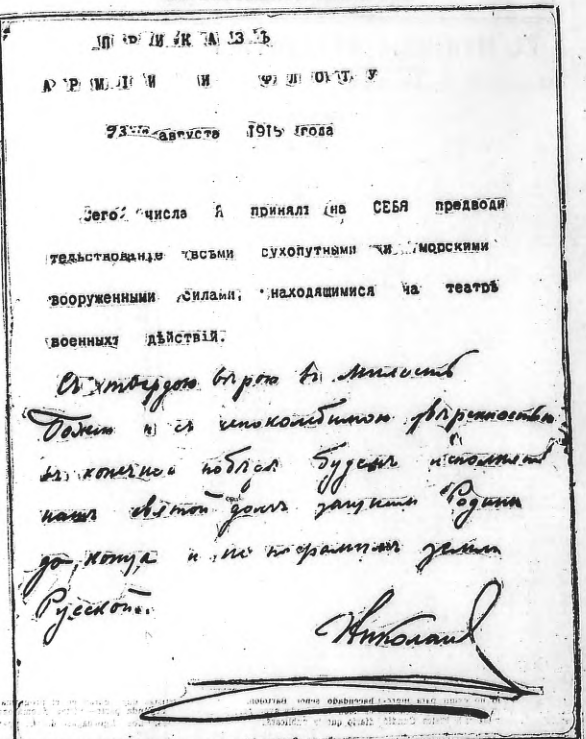 ПРИКАЗЪ
АРМІИ И ФЛОТУ
23го августа 1915 года
Сего числа Я принялъ на СЕБЯ предводи
тельствованіе всѣми сухопутными и морскими
вооруженными силами, находящимися на театрѣ
военныхъ дѣйствій.
Съ твердою вѣрою въ милость
Божію и съ непоколебимою увѣренностью
въ конечной побѣдѣ будемъ исполнять
нашъ святой долгъ защиты Родины
до конца и не посрамимъ земли
Русской.
Николай